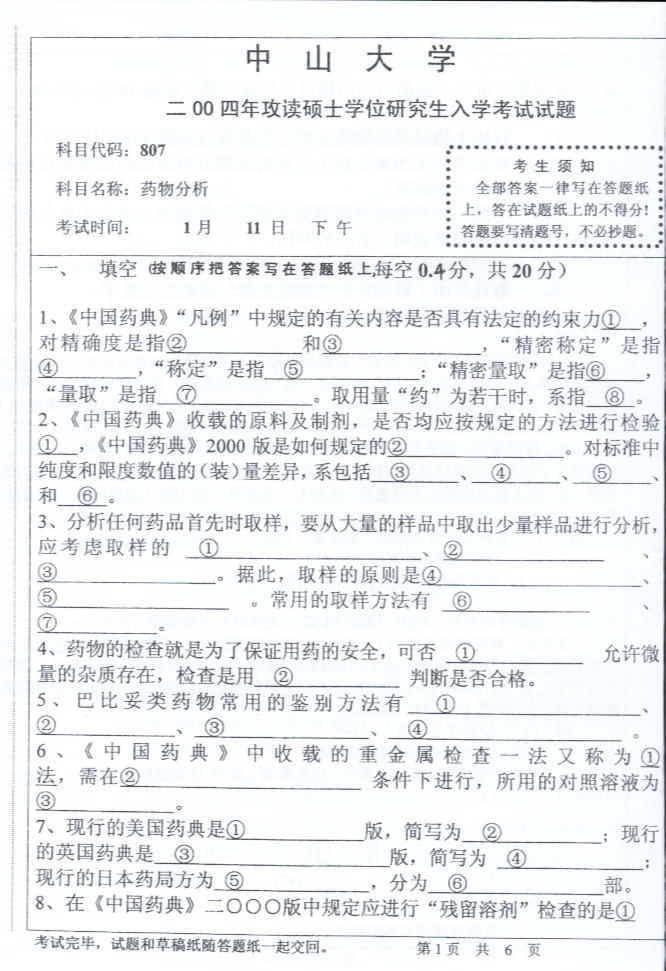 中 山 大 学
二00四年攻读硕士学位研究生入学考试试题
科目代码：807
科目名称：药物分析
考试时间： 1月 11 日 下 午
考 生 须 知
全部答案一律写在答题纸
上，答在试题纸上的不得分！
答题要写清题号，不必抄题。
一、 填空（按顺序把答案写在答题纸上，每空 0.4分，共 20 分）
1、《中国药典》“凡例”中规定的有关内容是否具有法定的约束力①__，
对精确度是指②____________和③______________，“精密称定”是指
④__________，“称定”是指__⑤____________；“精密量取”是指⑥____，
“量取”是指__⑦____________。取用量“约”为若干时，系指__⑧_。
2、《中国药典》收载的原料及制剂，是否均应按规定的方法进行检验
①__，《中国药典》2000 版是如何规定的②______________。对标准中
纯度和限度数值的（装）量差异，系包括__③____、__④____、__⑤____、
和__⑥_。
3、分析任何药品首先时取样，要从大量的样品中取出少量样品进行分析，
应考虑取样的__①__________________、②______________、
③________________。据此，取样的原则是④__________________、
⑤________________。常用的取样方法有__⑥____________、
⑦__________。
4、药物的检查就是为了保证用药的安全，可否__①__________允许微
量的杂质存在，检查是用__②__________判断是否合格。
5、巴比妥类药物常用的鉴别方法有____①________________、
②____________、__③____________、__④__________________。
6、《中国药典》中收载的重金属检查一法又称为①
法，需在②____________________条件下进行，所用的对照溶液为
③____________。
7、现行的美国药典是①__________版，简写为__②________；现行
的英国药典是__③________________版，简写为__④__________；
现行的日本药局方为_⑤____________，分为__⑥____________部。
8、在《中国药典》二〇〇〇版中规定应进行“残留溶剂”检查的是①
考试完毕，试题和草稿纸随答题纸一起交回。 第 1 页 共 6 页